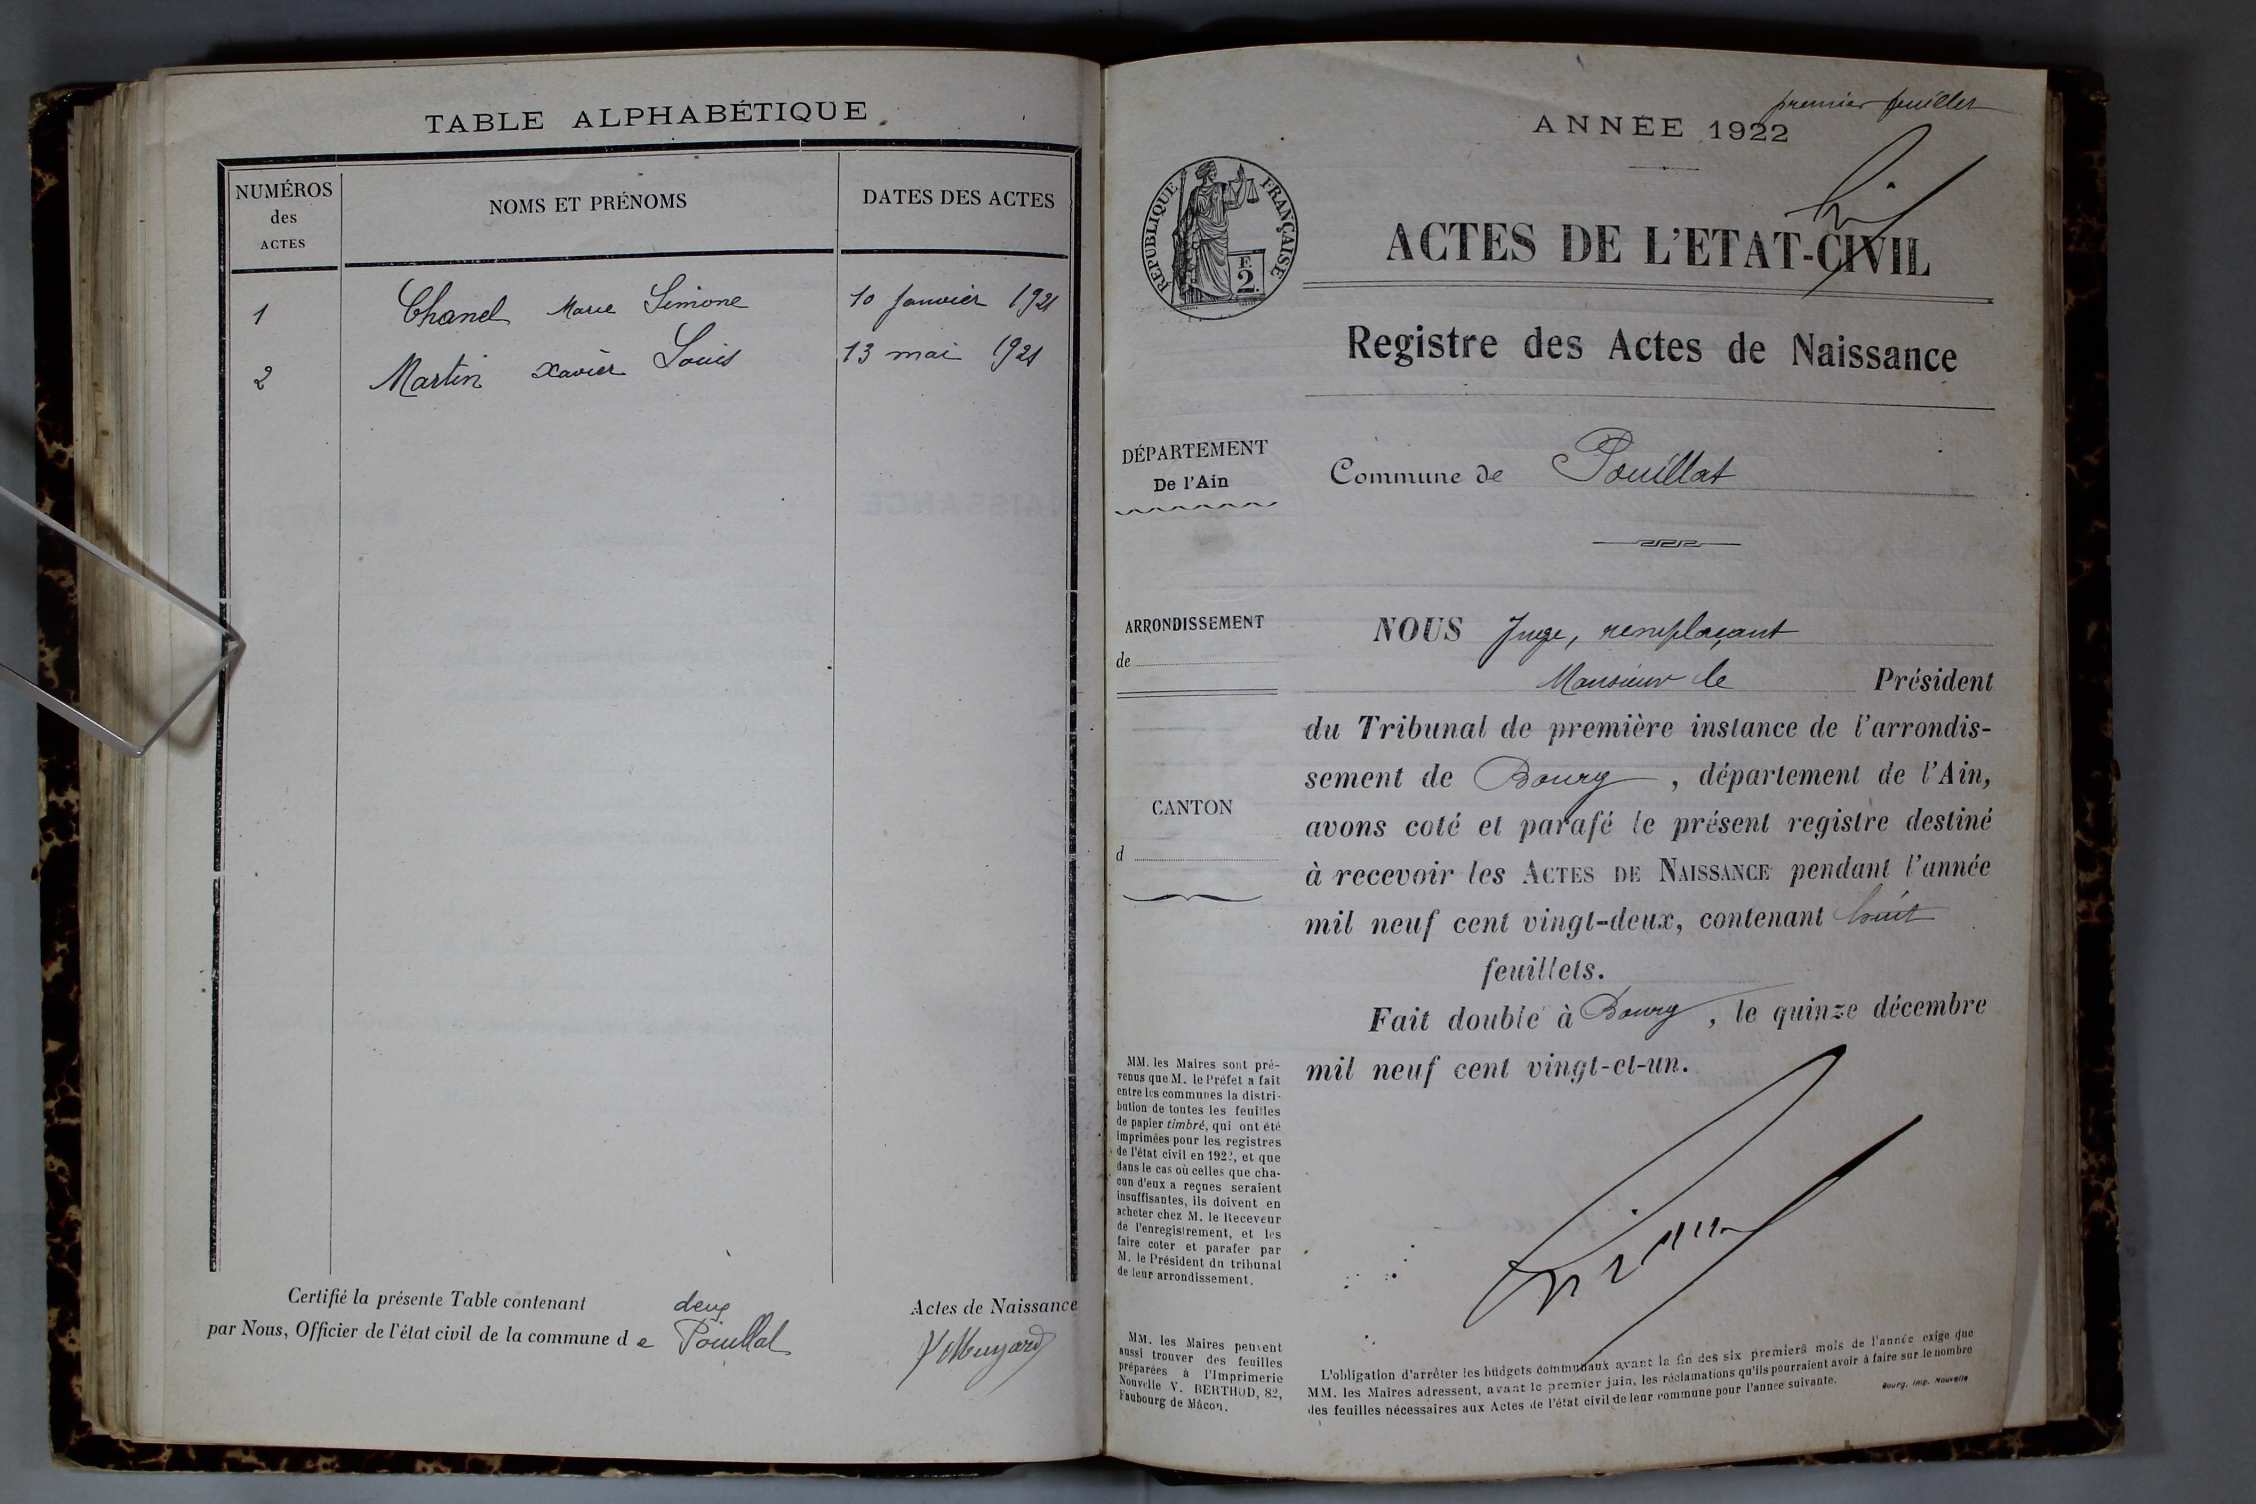 TABLE ALPHABÉTIQUE
NUMÉROS
des
ACTES
NOMS ET PRÉNOMS
DATES DES ACTES
1 Chanel Marie Simone 10 Janvier 1921
2 Martin Xavier Louis 13 mai 1921
Certifié la présente Table contenant deux Actes de Naissance
par Nous, Officier de l'état civil de la commune de Pouillat
premier feuillet
ANNÉE 1922
RÉPUBLIQUE FRANÇAISE
F.
2.
ACTES DE L'ETAT-CIVIL
Registre des Actes de Naissance
DÉPARTEMENT
De l'Ain
Commune de Pouillat
ARRONDISSEMENT
de
CANTON
d
NOUS Juge, remplaçant
Monsieur le Président
du Tribunal de première instance de l'arrondis-
sement de Bourg, département de l'Ain,
avons coté et parafé le présent registre destiné
à recevoir les ACTES DE NAISSANCE pendant l'année
mil neuf cent vingt-deux, contenant huit
feuillets.
Fait double à Bourg, le quinze décembre
mil neuf cent vingt-et-un.
MM. les Maires sont pré-
venus que M. le Préfet a fait
entre les communes la distri-
bution de toutes les feuilles
de papier timbré, qui ont été
imprimées pour les registres
de l'état civil en 1922, et que
dans le cas où celles que cha-
cun d'eux a reçues seraient
insuffisantes, ils doivent en
acheter chez M. le Receveur
de l'enregistrement, et les
faire coter et parafer par
M. le Président du tribunal
de leur arrondissement.
MM. les Maires peuvent
aussi trouver des feuilles
préparées à l'Imprimerie
Nouvelle V. BERTHOD, 82,
Faubourg de Mâcon.
L'obligation d'arrêter les budgets communaux avant la fin des six premiers mois de l'année exige que
MM. les Maires adressent, avant le premier juin, les réclamations qu'ils pourraient avoir à faire sur le nombre
des feuilles nécessaires aux Actes de l'état civil de leur commune pour l'année suivante.
Bourg, Imp. Nouvelle